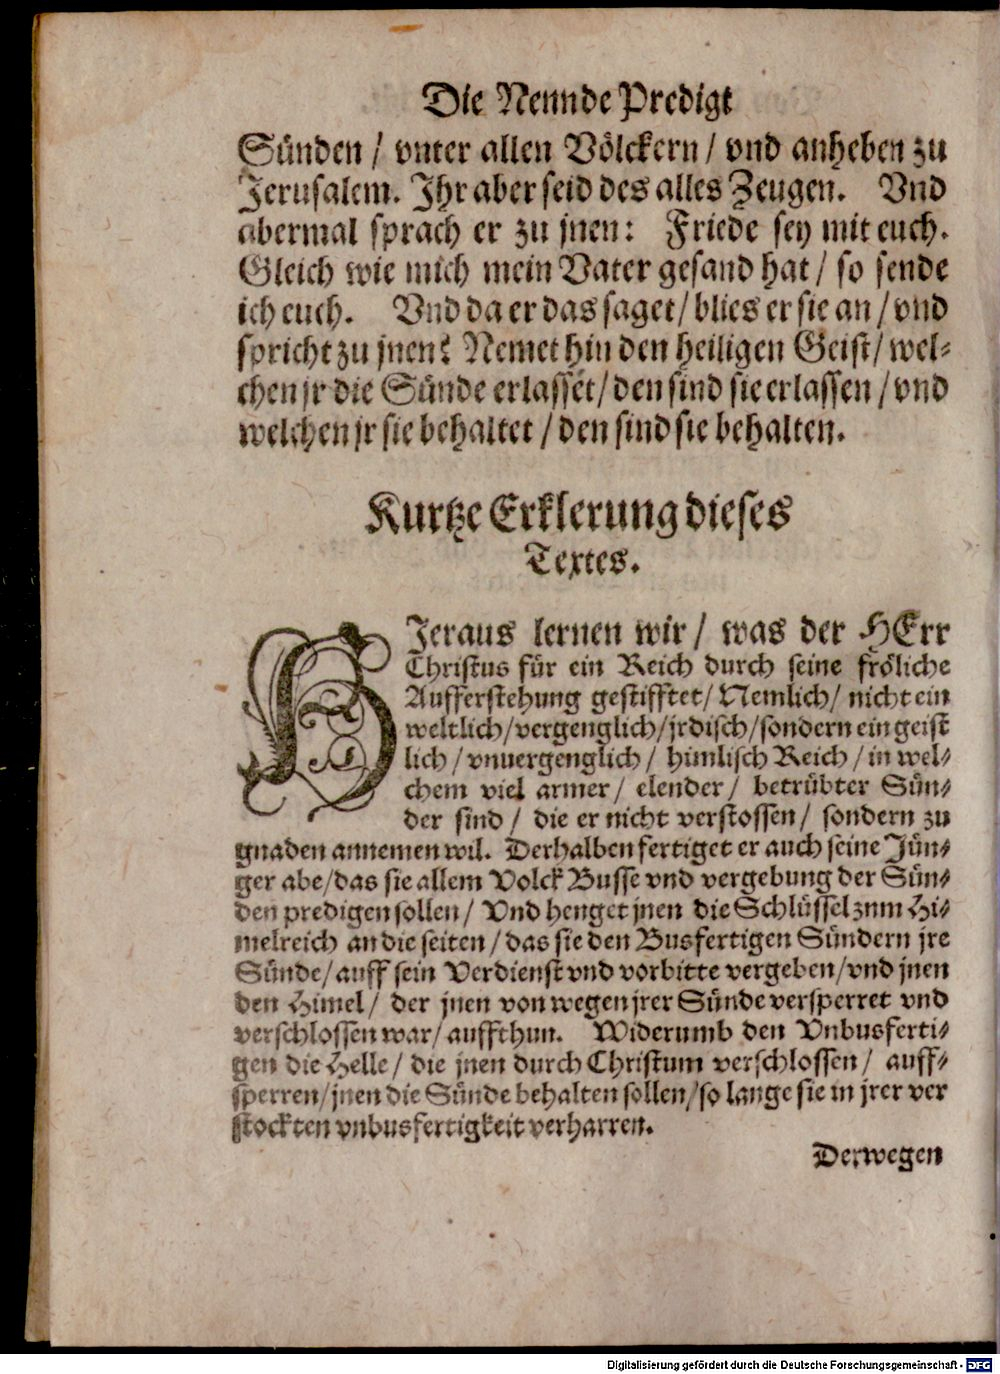 Die Neunde Predigt
Sünden / vnter allen Völckern / vnd anheben zu
Jerusalem. Jhr aber seid des alles Zeugen. Vnd
abermal sprach er zu jnen: Friede sey mit euch.
Gleich wie mich mein Vater gesand hat / so sende
ich euch. Vnd da er das saget / blies er sie an / vnd
spricht zu jnen: Nemet hin den heiligen Geist / wel⸗
chen jr die Sünde erlasset / den sind sie erlassen / vnd
welchen jr sie behaltet / den sind sie behalten.
Kurtze Erklerung dieses
Textes.
HJeraus lernen wir / was der HErr
Christus für ein Reich durch seine fröliche
Aufferstehung gestifftet / Nemlich / nicht ein
weltlich / vergenglich / jrdisch / sondern ein geist
lich / vnuergenglich / himlisch Reich / in wel⸗
chem viel armer / elender / betrübter Sün⸗
der sind / die er nicht verstossen / sondern zu
gnaden annemen wil. Derhalben fertiget er auch seine Jün⸗
ger abe / das sie allem Volck Busse vnd vergebung der Sün⸗
den predigen sollen / Vnd henget jnen die Schlüssel zum Hi⸗
melreich an die seiten / das sie den Busfertigen Sündern jre
Sünde / auff sein Verdienst vnd vorbitte vergeben / vnd jnen
den Himel / der jnen von wegen jrer Sünde versperret vnd
verschlossen war / auffthun. Widerumb den Vnbusferti⸗
gen die Helle / die jnen durch Christum verschlossen / auff⸗
sperren / jnen die Sünde behalten sollen / so lange sie in jrer ver
stockten vnbusfertigkeit verharren.
Derwegen
Digitalisierung gefördert durch die Deutsche Forschungsgemeinschaft - DFG